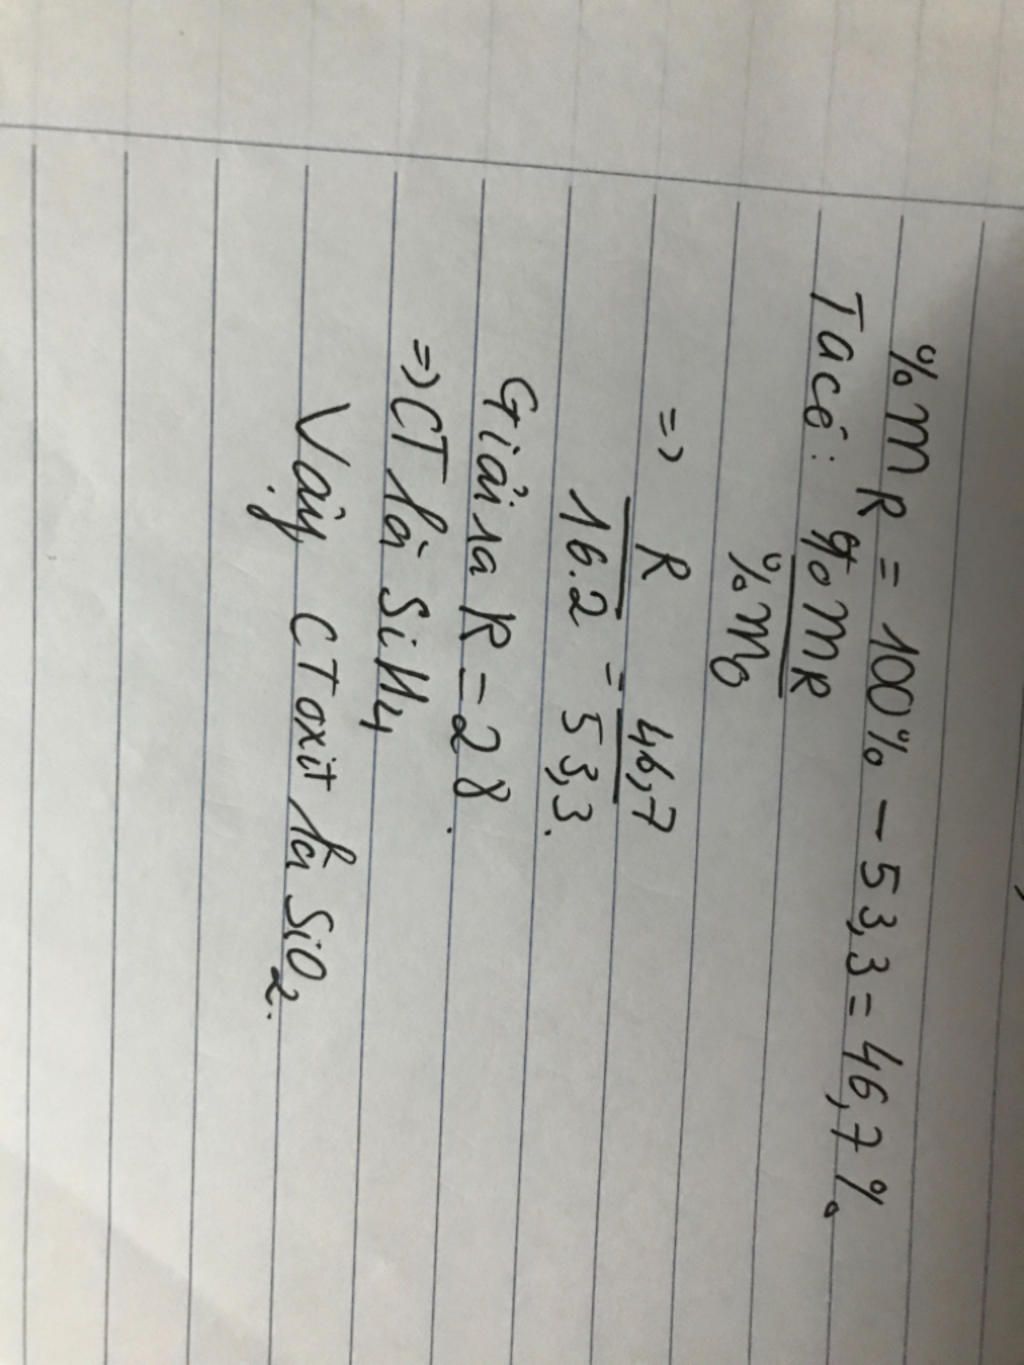 %mR = 100% - 53,3 = 46,7%
Ta có: %mR
%mO
=> R 46,7
16.2 = 53,3.
Giải ra R = 28.
=> CT là SiH4
Vậy CT oxit là SiO2.